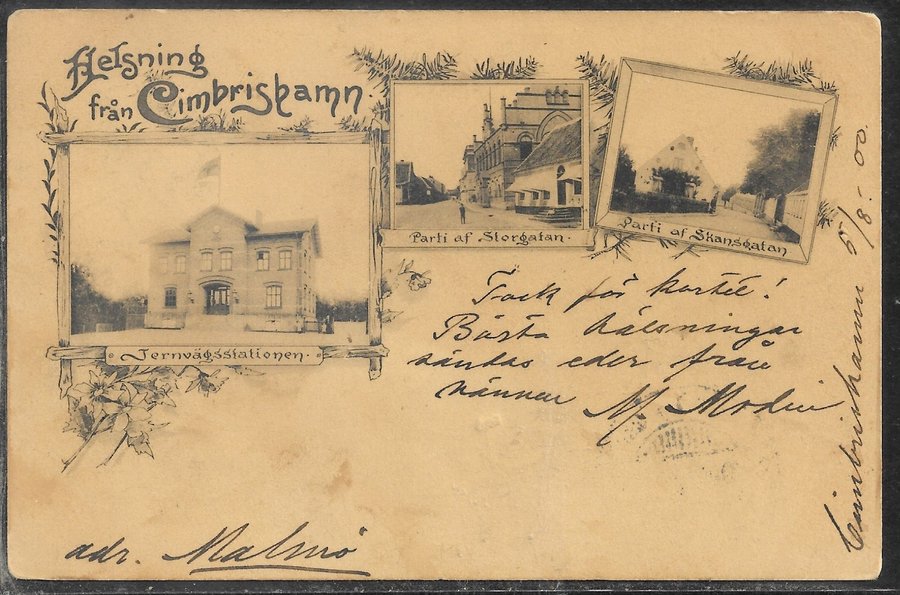 Helsning
från Cimbrishamn
Parti af Storgatan.
Parti af Skansgatan
Jernvägsstationen.
Tack för kortet!
Bästa hälsningar
sändas eder från
vännen M Modin
adr. Malmö
Cimbrishamn 5/8 - 00.